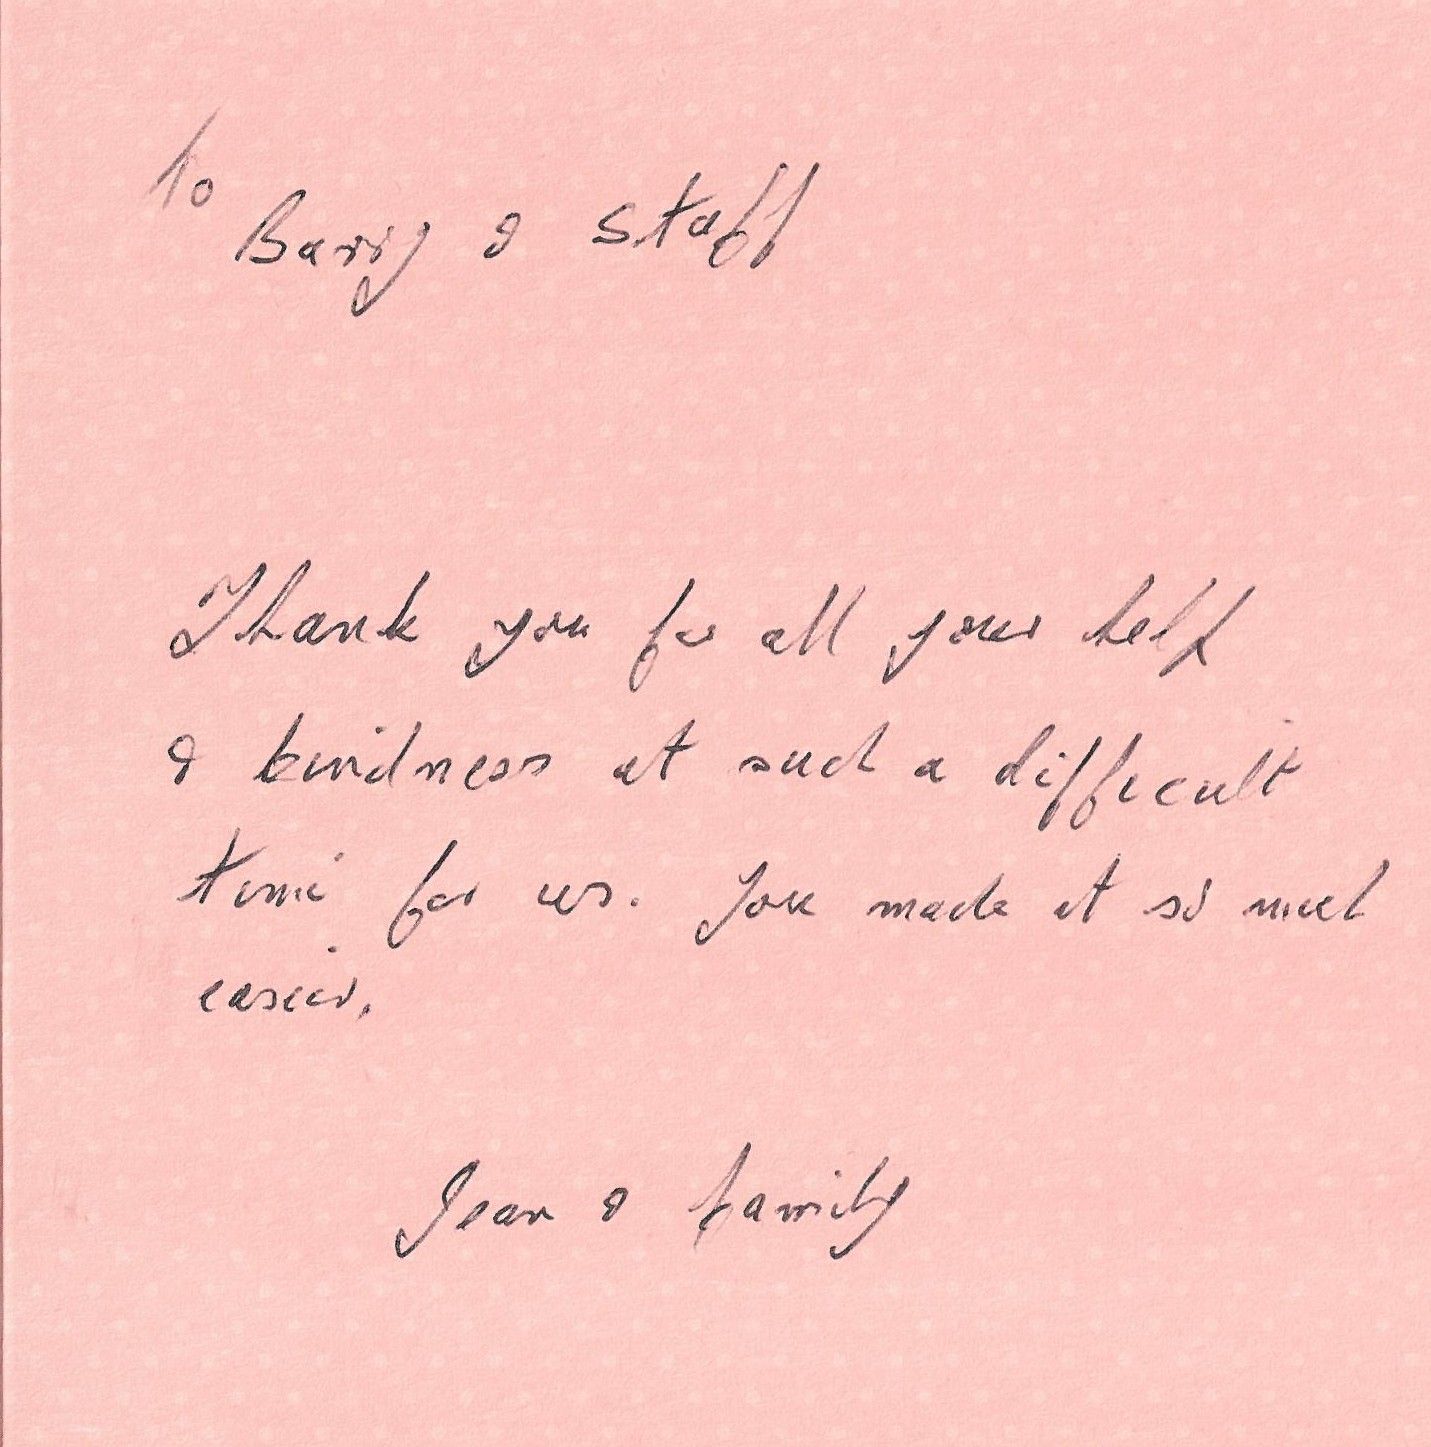 To
Barry & Staff
Thank you for all your help
& kindness at such a difficult
time for us. You made it so much
easier.
Jean & family